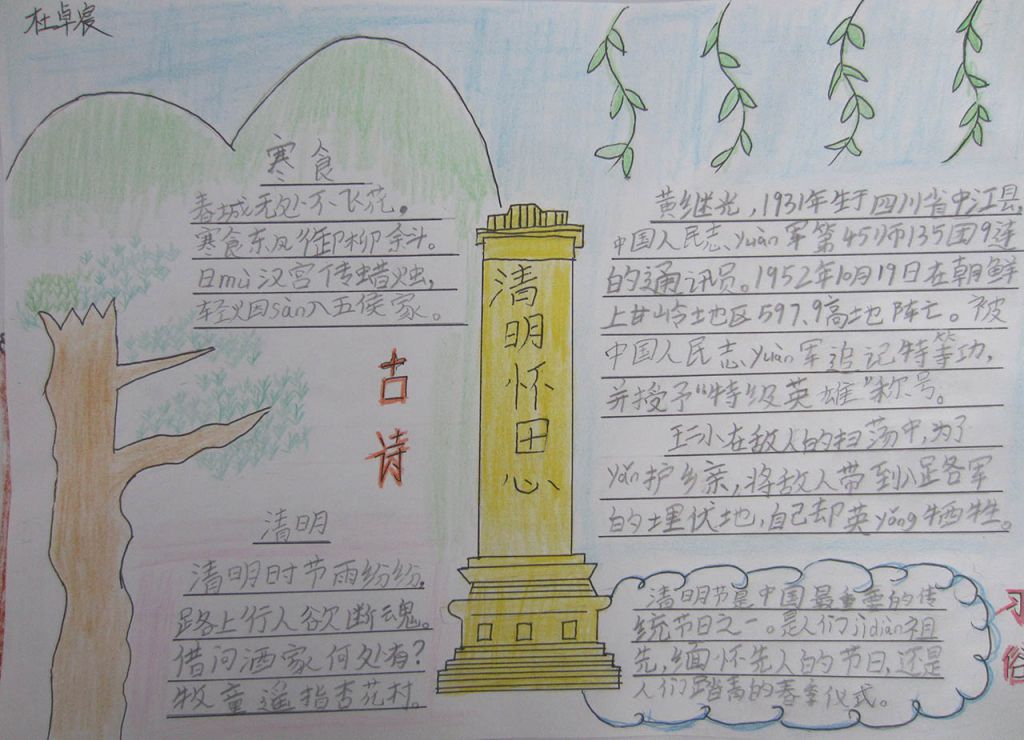 杜卓宸
寒食
春城无处不飞花，
寒食东风御柳斜。
日mù汉宫传蜡烛，
轻火因sàn入五侯家。
古诗
清明
清明时节雨纷纷，
路上行人欲断魂。
借问酒家何处有？
牧童遥指杏花村。
清明怀思
黄继光，1931年生于四川省中江县，
中国人民志yuàn军第45师135团9连
的通讯员。1952年10月19日在朝鲜
上甘岭地区597.9高地阵亡。被
中国人民志yuàn军追记特等功，
并授予“特级英雄”称号。
王二小在敌人的扫荡中，为了
yǎn护乡亲，将敌人带到八路军
的埋伏地，自己却英yǒng牺牲。
清明节是中国最重要的传
统节日之一。是人们jìdiàn祖
先，缅怀先人的节日，还是
人们踏青的春季仪式。
习俗